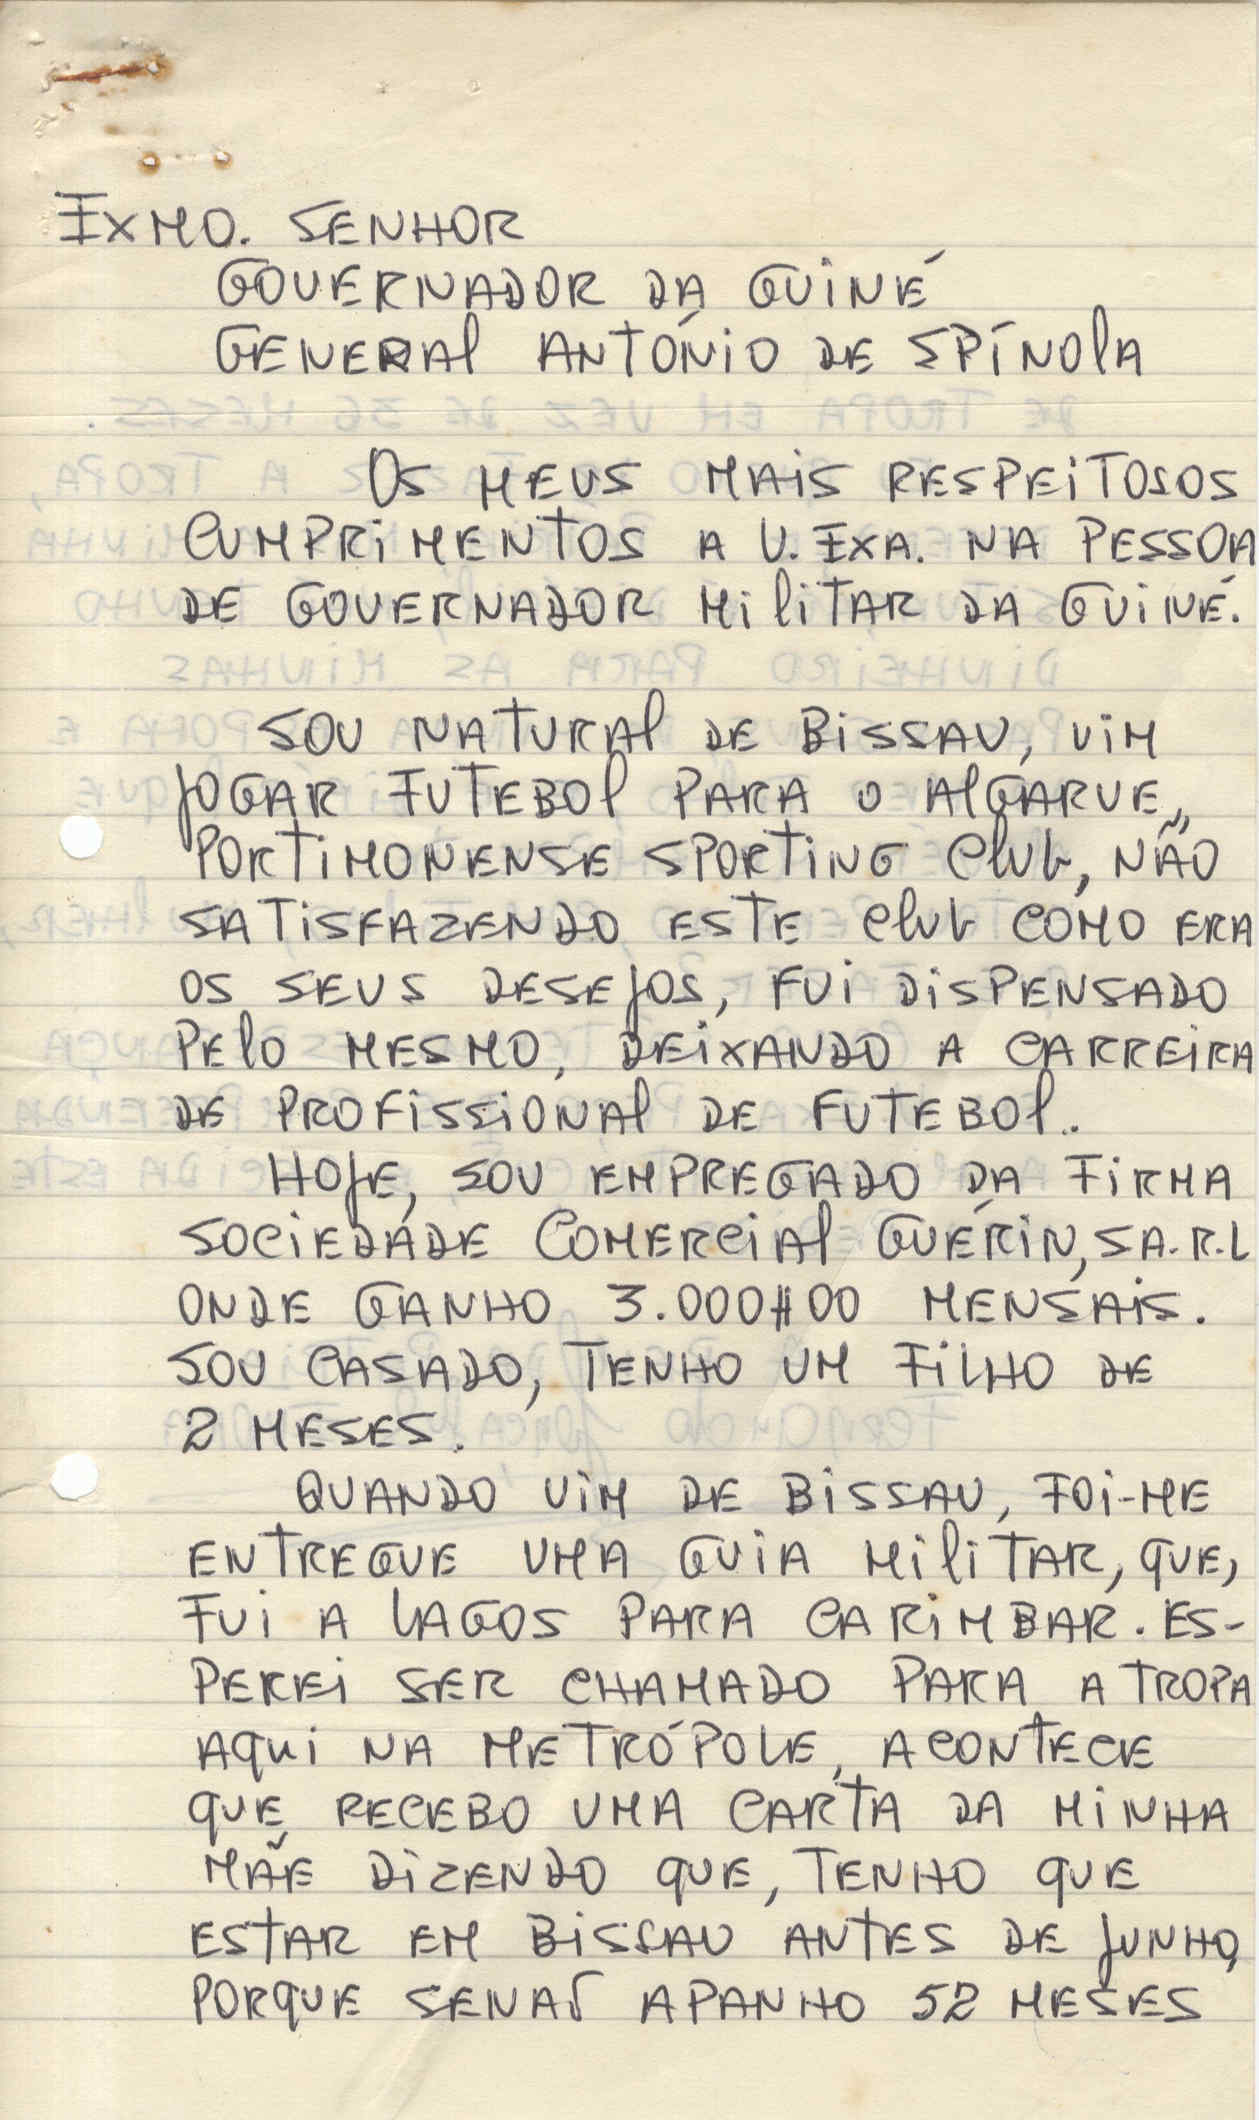 EXMO. SENHOR
GOVERNADOR DA GUINÉ
GENERAL ANTÓNIO DE SPÍNOLA
OS MEUS MAIS RESPEITOSOS
CUMPRIMENTOS A V. EXA. NA PESSOA
DE GOVERNADOR MILITAR DA GUINÉ.
SOU NATURAL DE BISSAU, VIM
JOGAR FUTEBOL PARA O ALGARVE,
PORTIMONENSE SPORTING CLUB, NÃO
SATISFAZENDO ESTE CLUB COMO ERA
OS SEUS DESEJOS, FUI DISPENSADO
PELO MESMO, DEIXANDO A CARREIRA
DE PROFISSIONAL DE FUTEBOL.
HOJE, SOU EMPREGADO DA FIRMA
SOCIEDADE COMERCIAL GUÉRIN, SA.R.L
ONDE GANHO 3.000$00 MENSAIS.
SOU CASADO, TENHO UM FILHO DE
2 MESES.
QUANDO VIM DE BISSAU, FOI-ME
ENTREGUE UMA GUIA MILITAR, QUE,
FUI A LAGOS PARA CARIMBAR. ES-
PEREI SER CHAMADO PARA A TROPA
AQUI NA METRÓPOLE, ACONTECE
QUE RECEBO UMA CARTA DA MINHA
MÃE DIZENDO QUE, TENHO QUE
ESTAR EM BISSAU ANTES DE JUNHO,
PORQUE SENÃO APANHO 52 MESES